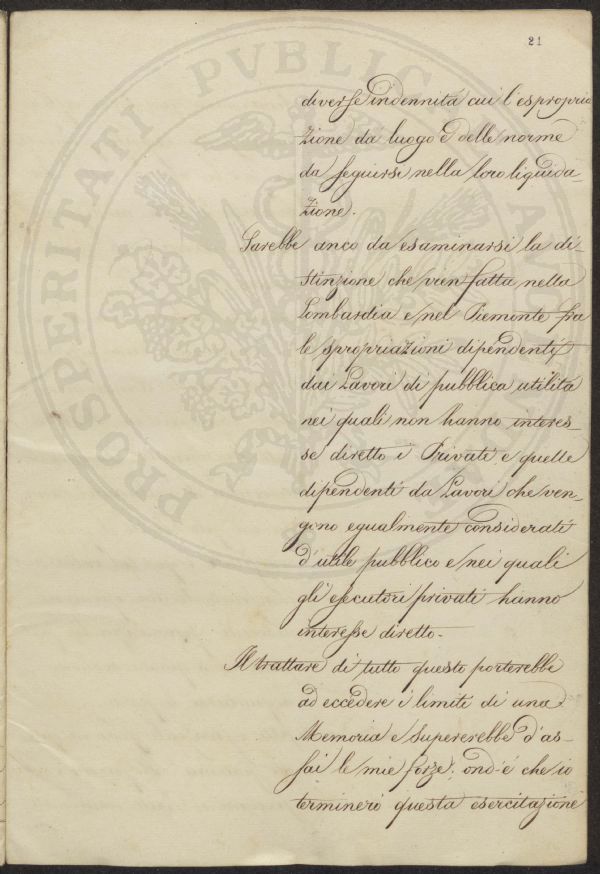 21
diverse indennità cui l'espropria
zione dà luogo e delle norme
da seguirsi nella loro liquida-
zione.
Sarebbe anco da esaminarsi la di-
stinzione che vien fatta nella
Lombardia e nel Piemonte fra
le spropriazioni dipendenti
dai Lavori di pubblica utilità
nei quali non hanno interes-
se diretto i Privati e quelle
dipendenti da Lavori che ven-
gono egualmente considerati
d'utile pubblico e nei quali
gli esecutori privati hanno
interesse diretto.
Il trattare di tutto questo porterebbe
ad eccedere i limiti di una
Memoria e supererebbe d'as-
sai le mie forze; ond'è che io
terminerò questa esercitazione
PROSPERITATI PUBLICAE